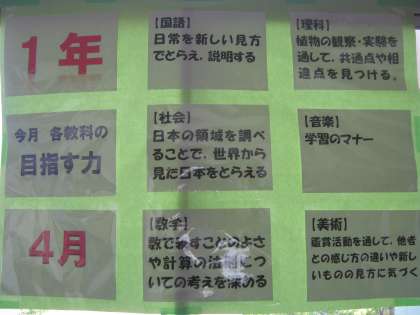 1年
今月 各教科の
目指す力
4月
【国語】
日常を新しい見方
でとらえ、説明する
【社会】
日本の領域を調べ
ることで、世界から
見た日本をとらえる
【数学】
数で表すことのよさ
や計算の法則につ
いての考えを深める
【理科】
植物の観察・実験を
通して、共通点や相
違点を見つける。
【音楽】
学習のマナー
【美術】
鑑賞活動を通して、他者
との感じ方の違いや新し
いものの見方に気づく